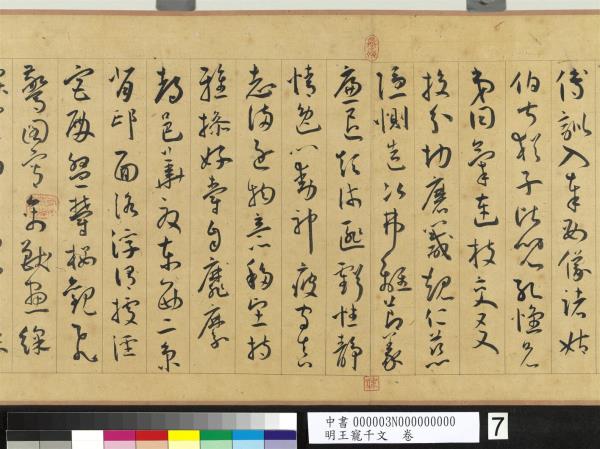 傅訓入奉母儀諸姑
伯叔猶子比兒孔懷兄
弟同氣連枝交友
投分切磨箴規仁慈
隱惻造次弗離節義
廉退顛沛匪虧性靜
情逸心動神疲守真
志滿逐物意移堅持
雅操好爵自縻
都邑華夏東西二京
背邙面洛浮渭據涇
宮殿盤鬱樓觀飛
驚圖寫禽獸畫綵
中書 000003N000000000
明王寵千文 卷
7